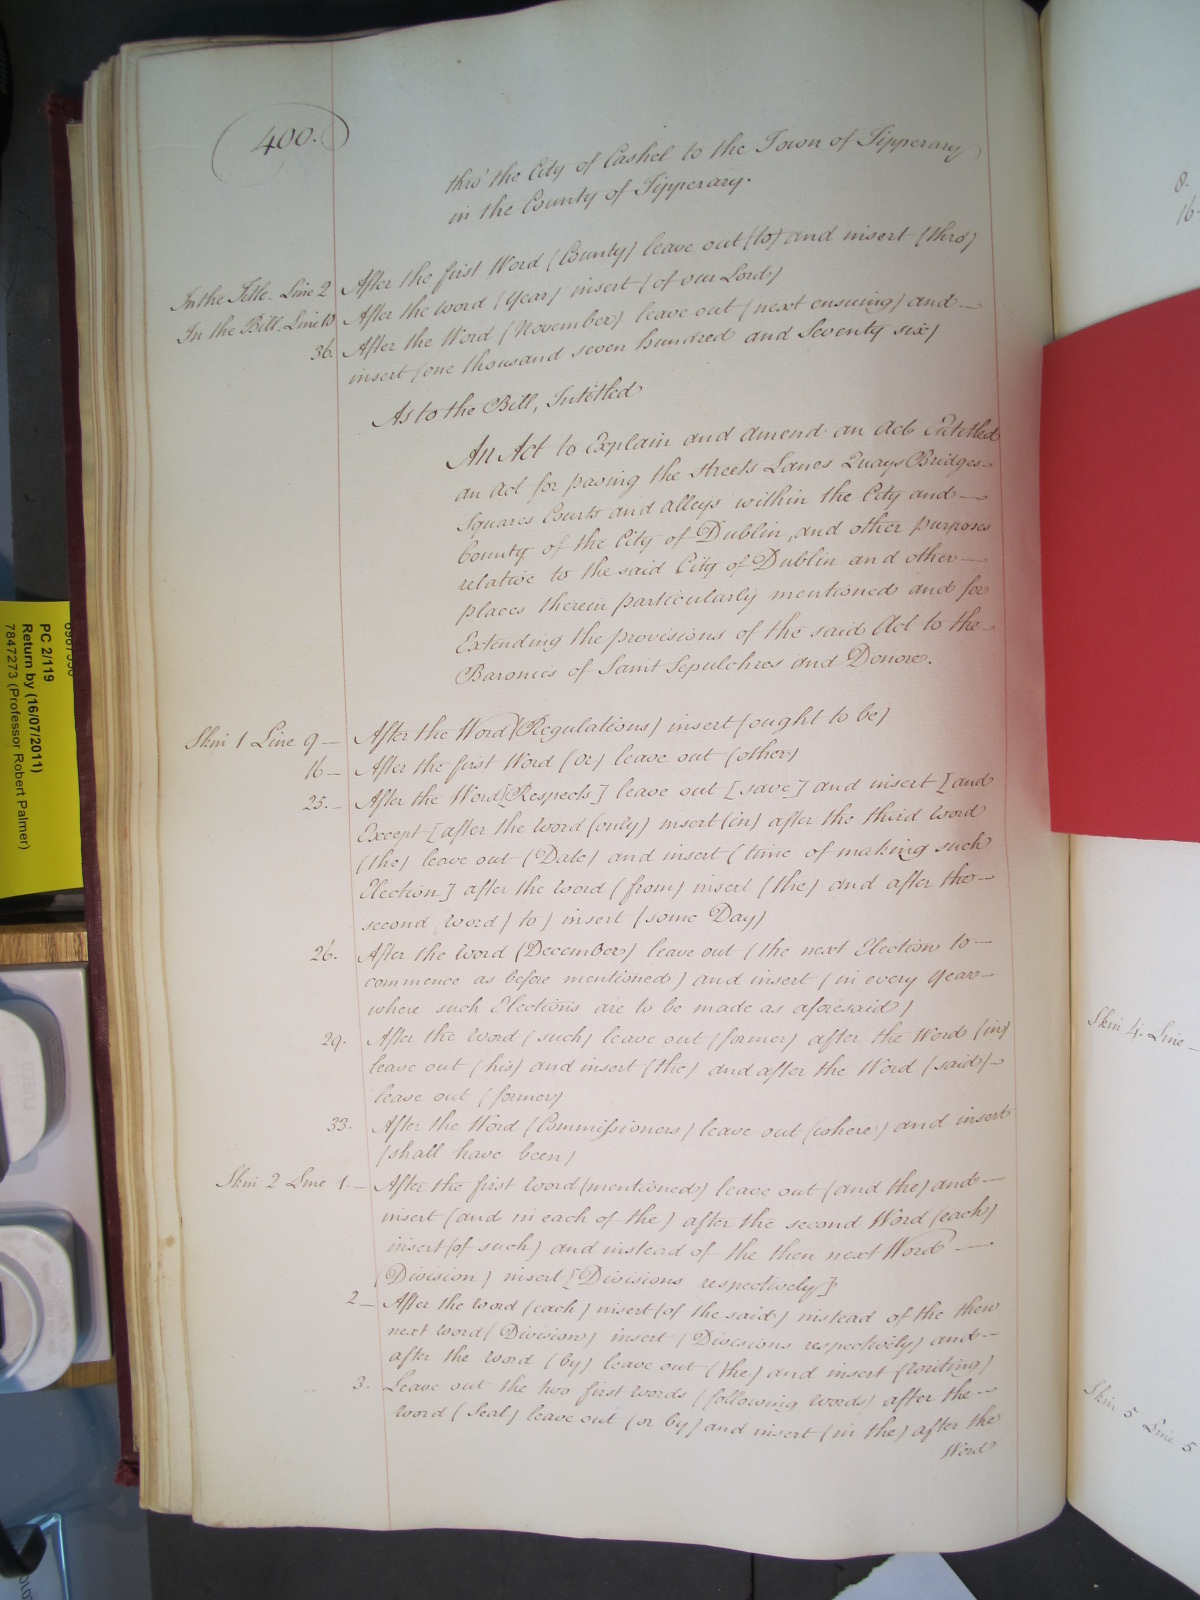 400.
thro' the City of Cashel to the Town of Tipperary
in the County of Tipperary.
In the Title. Line 2 After the first Word (County) leave out (to) and insert (thro')
In the Bill. Line 10 After the word (Year) insert (of our Lord)
36. After the Word (November) leave out (next ensuing) and —
insert (one thousand seven hundred and Seventy six)
As to the Bill, Intitled
An Act to Explain and Amend an Act Entitled
an Act for paving the streets Lanes Quays Bridges —
Squares Courts and alleys within the City and —
County of the City of Dublin, and other purposes
relative to the said City of Dublin and other —
places therein particularly mentioned and for
Extending the provisions of the said Act to the —
Baronies of Saint Sepulchres and Donore.
Skin 1 Line 9 — After the Word (Regulations) insert (ought to be)
16 — After the first Word (or) leave out (other)
25. — After the Word [Respects] leave out [save] and insert [and
Except [after the word (only) insert (in) after the third word
(the) leave out (Date) and insert (time of making such
Election] after the word (from) insert (the) and after the —
second word) to) insert (some Day)
26. After the word (December) leave out (the next Election to —
commence as before mentioned) and insert (in every Year —
where such Elections are to be made as aforesaid)
29. After the word (such) leave out (former) after the Word (in)
leave out (his) and insert (the) and after the Word (said) —
leave out (former)
33. After the Word (Commissioners) leave out (where) and insert
(shall have been)
Skin 2 Line 1. — After the first word (mentioned) leave out (and the) and —
insert (and in each of the) after the second Word (each)
insert (of such) and instead of the then next Word —
(Division) insert [Divisions respectively]
2 — After the word (each) insert (of the said) instead of the then
next word (Division) insert (Divisions respectively) and —
after the word (by) leave out (the) and insert (writing)
3. Leave out the two first words (following words) after the —
word (Seal) leave out (or by) and insert (in the) after the
Word
8.
16
Skin 4. Line —
Skin 5 Line 5
PC 2/119
Return by (16/07/2011)
7847273 (Professor Robert Palmer)